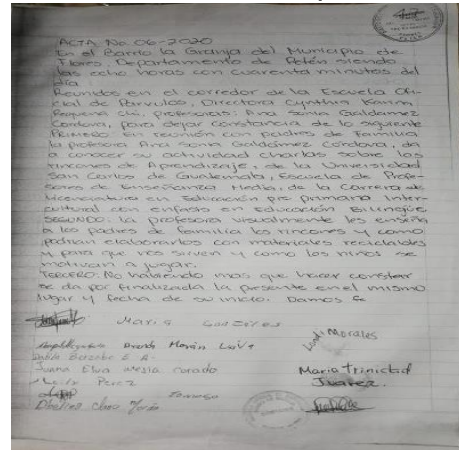 ACTA No. 06-2020
En el Barrio la Granja del Municipio de
Flores, Departamento de Petén siendo
las ocho horas con cuarenta minutos del
día:
Reunidos en el corredor de la Escuela Ofi-
cial de Parvulos, Directora Cynthia Karina
Requena Chi, profesoras: Ana Sonia Galdamez
Cordova, para dejar constancia de lo siguiente
PRIMERO: En reunión con padres de Familia
la profesora Ana Sonia Galdámez Córdova, da
a conocer su actividad charlas sobre los
rincones de Aprendizaje, de la Universidad
San Carlos de Guatemala, Escuela de Profe-
sores de Enseñanza Media, de la Carrera de
Licenciatura en Educación pre primaria Inter-
cultural con enfasis en Educación Bilingüe.
SEGUNDO: la profesora visualmente les enseña
a los padres de familia los rincones y como
podrian elaborarlos con materiales reciclables
y para que nos sirven y como los niños se
motivan a jugar.
TERCERO: No habiendo mas que hacer constar
se da por finalizada la presente en el mismo
lugar y fecha de su inicio. Damos fe
Maria Gonzales
Morales
Juana Elva
Maria Trinidad
Perez
Juarez